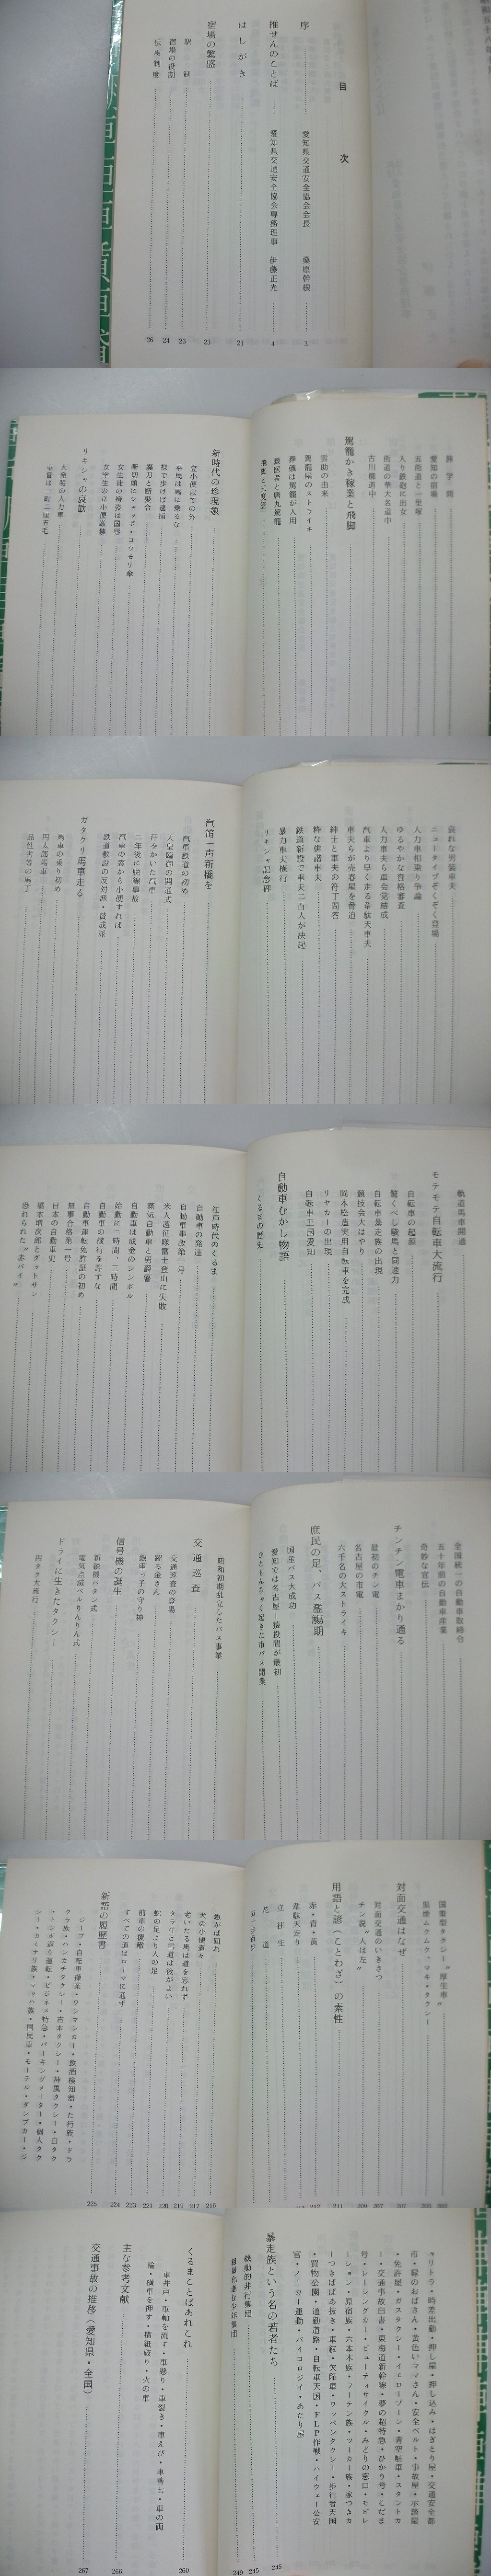 目次
序 愛知県交通安全協会会長 桑原幹根 3
推せんのことば 愛知県交通安全協会専務理事 伊藤正光 4
はしがき 21
宿場の繁盛 23
駅制 23
宿場の役割 24
伝馬制度 26
旅学問
愛知の宿場
五街道と一里塚
入り鉄砲に出女
街道の華大名道中
古川柳道中
駕籠かき稼業と飛脚
雲助の由来
駕籠屋のストライキ
葬儀は駕籠が入用
飛脚と三度笠
新時代の珍現象
立小便以ての外
平民は馬に乗るな
裸で歩けば逮捕
廃刀と断髪令
斬切頭にシャッポ・コウモリ傘
女生徒の袴姿は国辱
女学生の立小便厳禁
リキシャの哀歓
大発明の人力車
車賃は一町二厘五毛
哀れな男装車夫
ニュータイプぞくぞく登場
人力車相乗り争論
ゆるやかな資格審査
人力車夫ら車会党結成
汽車より早く走る韋駄天車夫
車夫らが売春屋を脅迫
紳士と車夫の符丁問答
粋な俳諧車夫
鉄道新設で車夫二百人が決起
暴力車夫横行
リキシャ記念碑
汽笛一声新橋を
汽車鉄道の初め
天皇臨御の開通式
汗をかいた汽車
二年後に脱線事故
汽車の窓から小便すれば
鉄道敷設の反対派・賛成派
ガタクリ馬車走る
馬車の乗り初め
円太郎馬車
品性劣等の馬丁
軌道馬車開通
モテモテ自転車大流行
自転車の起源
驚くべし駿馬と同速力
自転車暴走族の出現
競技会大はやり
岡本松造実用自転車を完成
リヤカーの出現
自転車王国愛知
自動車むかし物語
くるまの歴史
江戸時代のくるま
自動車の発達
自動車事故第一号
米人遠征隊富士登山に失敗
蒸気自動車と男爵薯
自動車は成金のシンボル
始動に二時間、三時間
自動車の横行を許すな
自動車運転免許証の初め
無事合格第一号
日本の自動車史
橋本増次郎とダットサン
恐れられた“赤バイ”
全国統一の自動車取締令
五十年前の自動車産業
奇妙な宣伝
チンチン電車まかり通る
最初のチン電
名古屋の市電
六千名の大ストライキ
庶民の足、バス濫觴期
国産バス大成功
愛知では名古屋―猿投間が最初
ひともんちゃく起きた市バス開業
昭和初期乱立したバス事業
交通巡査
交通巡査の登場
躍る金さん
銀座っ子の守り神
信号機の誕生
新鋭機バタン式
電気点滅ベルりんりん式
ドライに生きたタクシー
円タク大流行
国策型タクシー“厚生車”
黒煙ムクムク、マキ・タクシー
対面交通はなぜ
対面交通のいきさつ 207
チン説“人は左” 209
用語と諺(ことわざ)の素性 211
赤・青・黄
韋駄天走り
立往生
花道
五十歩百歩
急がば回れ 216
犬の小便道々 217
老いたる馬は道を忘れず 219
タラ汁と雪道は後がよい 220
蛇の足より人の足 221
前車の覆轍 223
すべての道はローマに通ず 224
新語の履歴書 225
ジープ・自転車操業・ワンマンカー・飲酒検知器・た行族・ドラ
クラ族・ハンカチタクシー・古本タクシー・神風タクシー・白タク
・トンボ返り運転・ビジネス特急・パーキングメーター・個人タク
シー・カミナリ族・マッハ族・国民車・モーテル・ダンプカー・ジ
ャリトラ・時差出勤・押し屋・押し込み・はぎとり屋・交通安全都
市・緑のおばさん・黄色いママさん・安全ベルト・事故屋・示談屋
・免許屋・ガスタクシー・イエローゾーン・青空駐車・スタントカ
ー・交通事故白書・東海道新幹線・夢の超特急・ひかり号・こだま
号・レーシングカー・ビューティサイクル・みどりの窓口・モビレ
ージョン・原宿族・六本木族・フーテン族・ツーカー族・家つきカ
ーつきばばあ抜き・車紋・欠陥車・ワッペンタクシー・歩行者天国
・買物公園・通勤道路・自転車天国・FLP作戦・ハイウェー公安
官・ノーカー運動・バイコロジイ・あたり屋
暴走族という名の若者たち 245
機動的非行集団 245
粗暴化進む少年集団 249
くるまことばあれこれ 260
車井戸・車軸を流す・車懸り・車裂き・車えび・車善七・車の両
輪・横車を押す・横紙破り・火の車
主な参考文献 266
交通事故の推移(愛知県・全国) 267